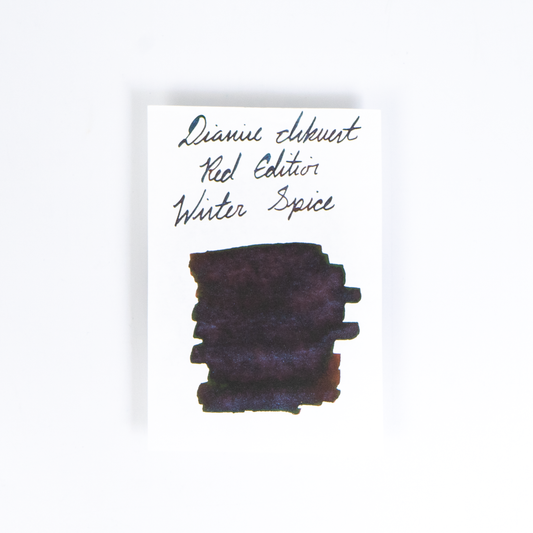 Diamine Inkvent
Red Edition
Winter Spice